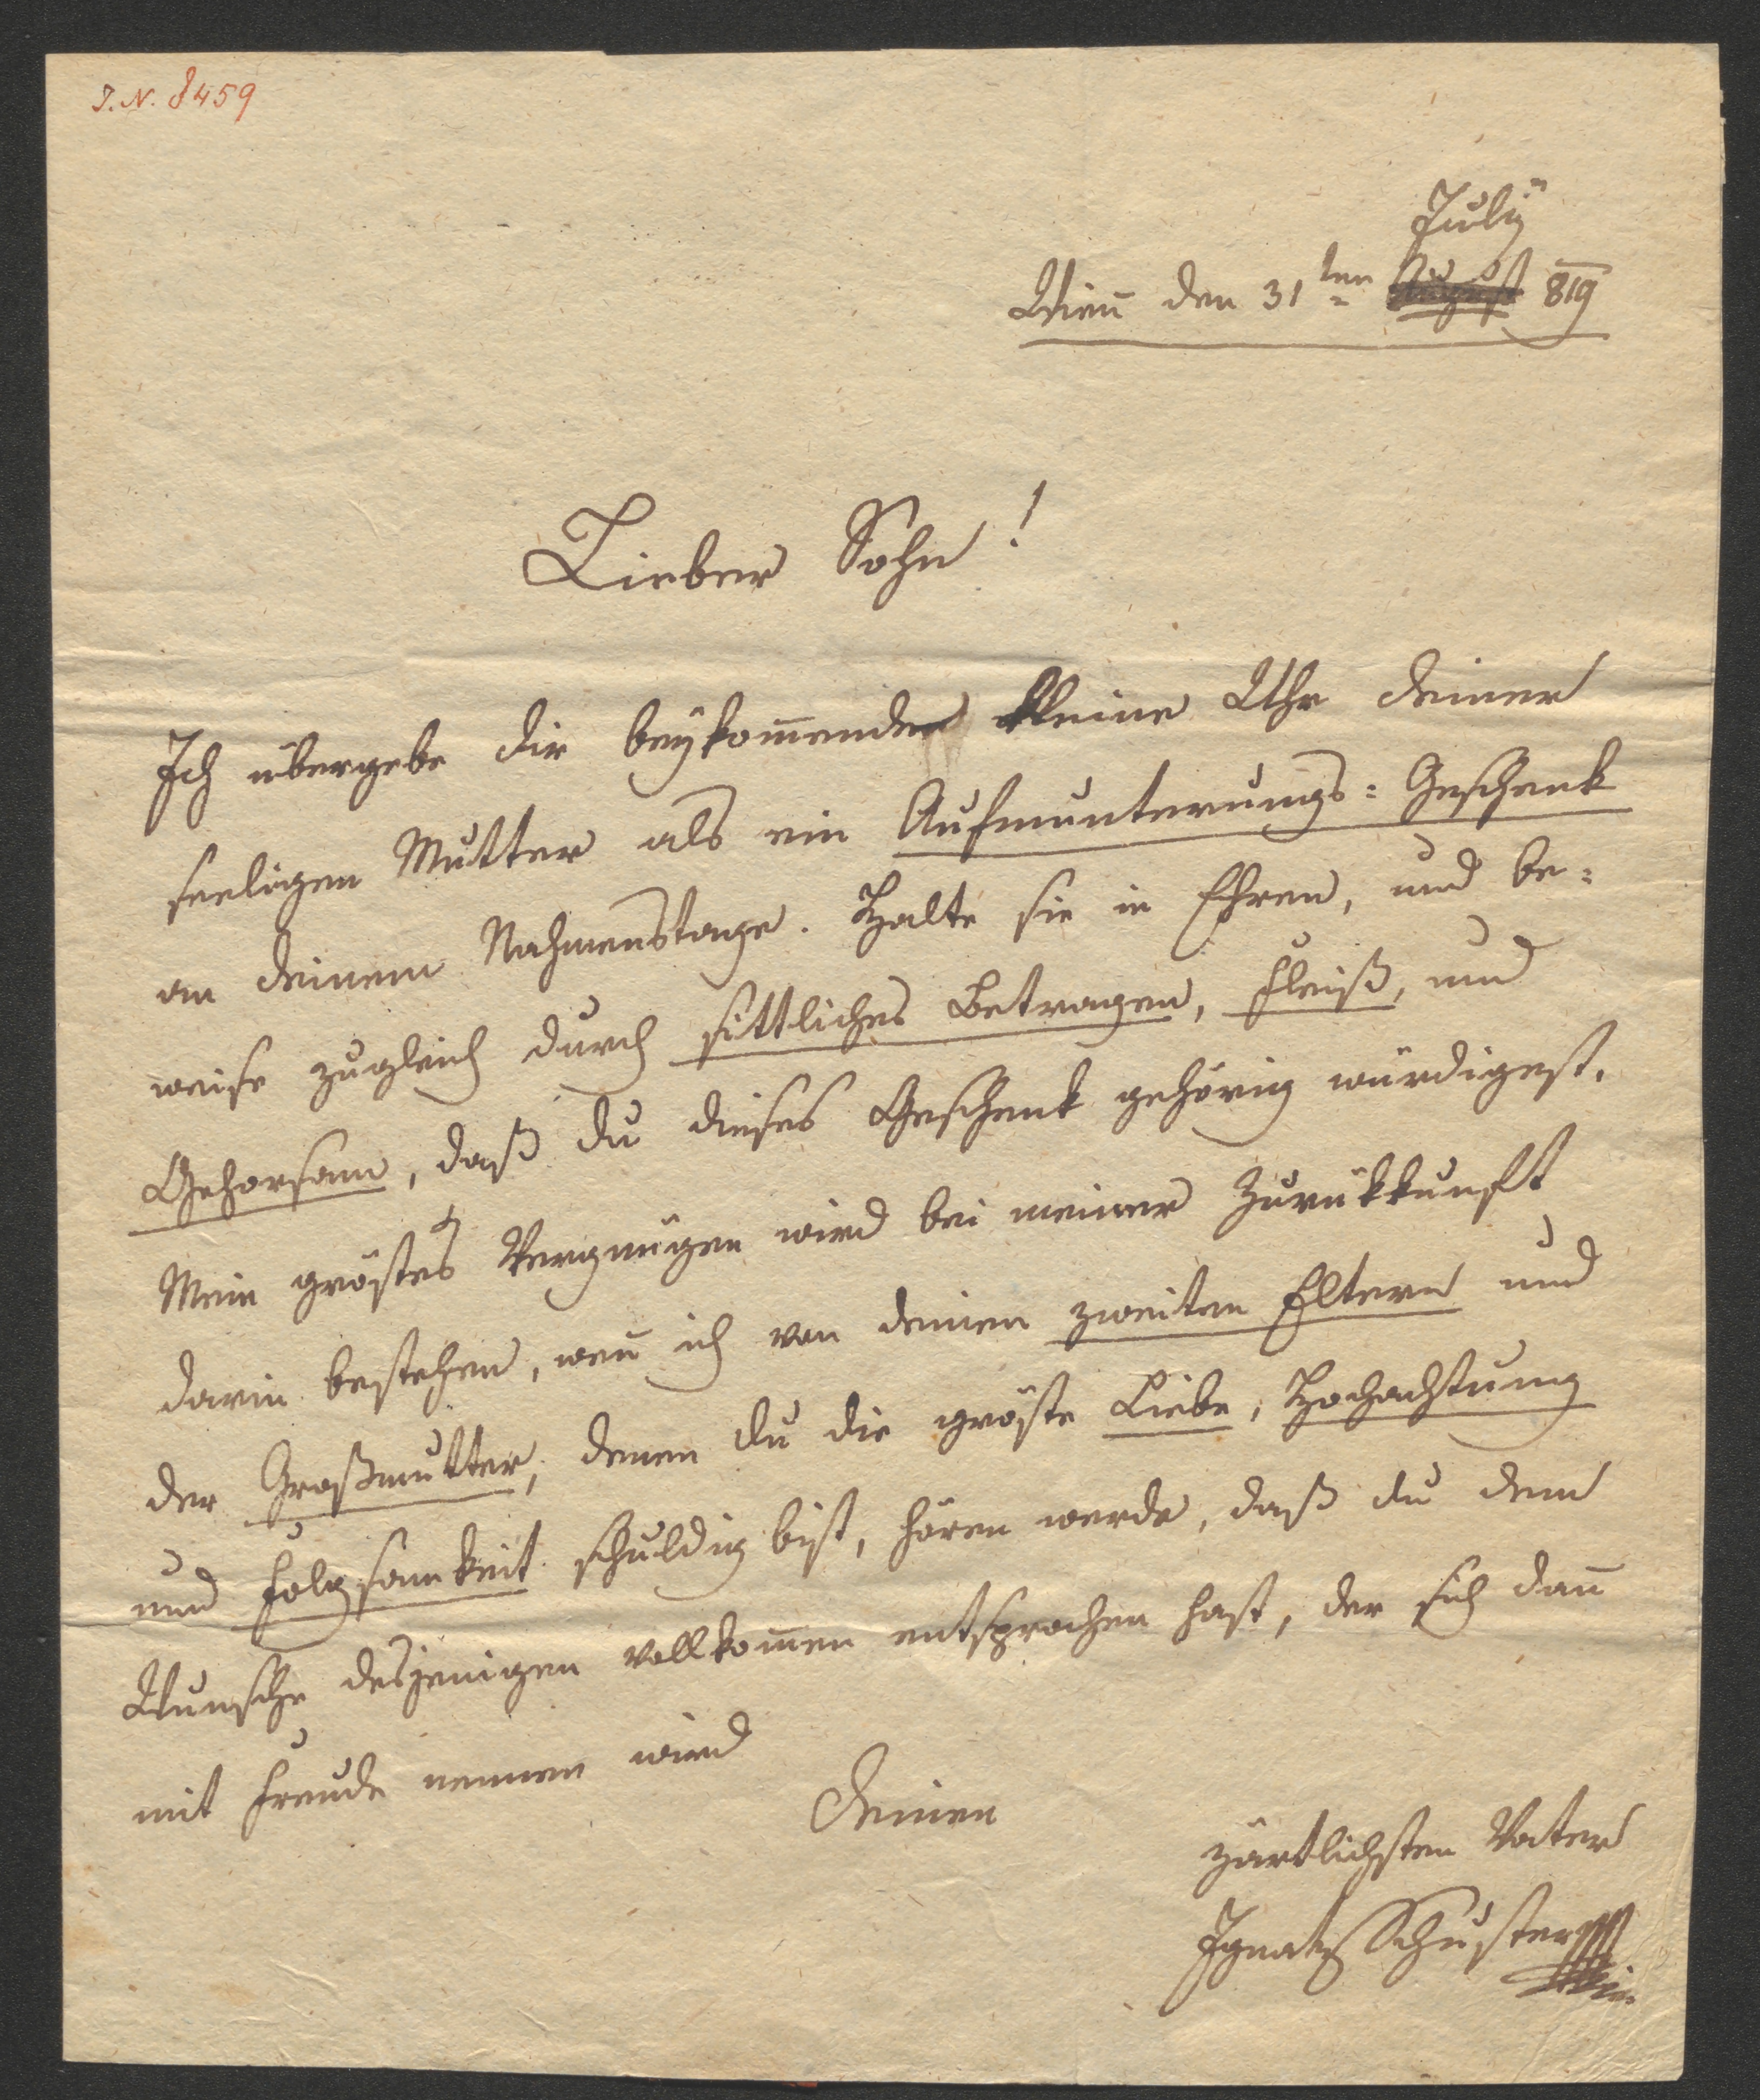 I. N. 8459
July
Wien̄ den 31ten August 819
Lieber Sohn!
Ich übergebe dir beykom̄ende kleine Uhr deiner
seeligen Mutter als ein Aufmunterungs=Geschenk
an deinem Nahmenstage. Halte sie in Ehren, und be=
weise zugleich durch sittliches Betragen, Fleiß, und
Gehorsam, daß du dieses Geschenk gehörig würdigest.
Mein gröstes Vergnügen wird bei meiner Zurükkunft
darin bestehen, wen̄ ich von deinen zweiten Eltern und
der Großmutter, denen du die gröste Liebe, Hochachtung
und Folgsamkeit schuldig bist, hören werde, daß du dem
Wunsche desjenigen vollkom̄en entsprochen hast, der sich dan̄
mit Freude nennen wird
deinen
zärtlichsten Vater
Ignatz Schuster